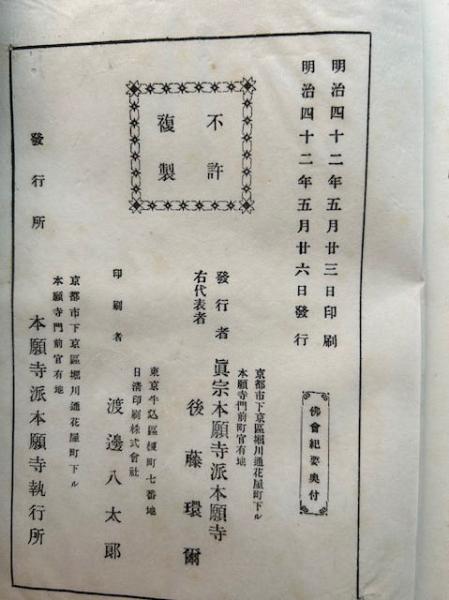 明治四十二年五月廿三日印刷
明治四十二年五月廿六日發行
佛會紀要奥付
不許
複製
京都市下京區堀川通花屋町下ル
本願寺門前官有地
發行者 眞宗本願寺派本願寺
右代表者 後藤環爾
東京牛込區榎町七番地
日淸印刷株式會社
印刷者 渡邊八太郞
京都市下京區堀川通花屋町下ル
本願寺門前官有地
發行所 本願寺派本願寺執行所